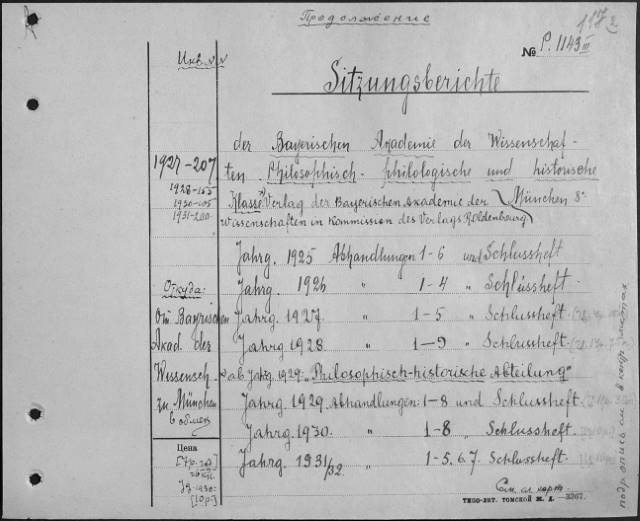 Продолжение
117 2
№ P. 1143 III
Инв. №№
Sitzungsberichte
der Bayerischen Akademie der Wissenschaf-
ten. Philosophisch-philologische und historische
Klasse. Verlag der Bayerischen Akademie der München 8°
Wissenschaften in Kommission des Verlags R. Oldenbourg
1927-207
1928-155
1930-105
1931-200
Jahrg. 1925 Abhandlungen 1-6 und Schlussheft
Jahrg. 1926 " 1-4 " Schlussheft
Jahrg. 1927 " 1-5 " Schlussheft
Jahrg. 1928 " 1-9 " Schlussheft
ab Jahrg. 1929: "Philosophisch-historische Abteilung"
Jahrg. 1929 Abhandlungen: 1-8 und Schlussheft
Jahrg. 1930 " 1-8 " Schlussheft
Jahrg. 1931/32 " 1-5, 6, 7. Schlussheft
Откуда:
От Bayrischen
Akad. der
Wissensch.
zu München
в обмен
Цена
См. сл. карт.
ТИПО-ЛИТ. ТОМСКОЙ Ж. Д. —3267.
подр. опись см. в карт.